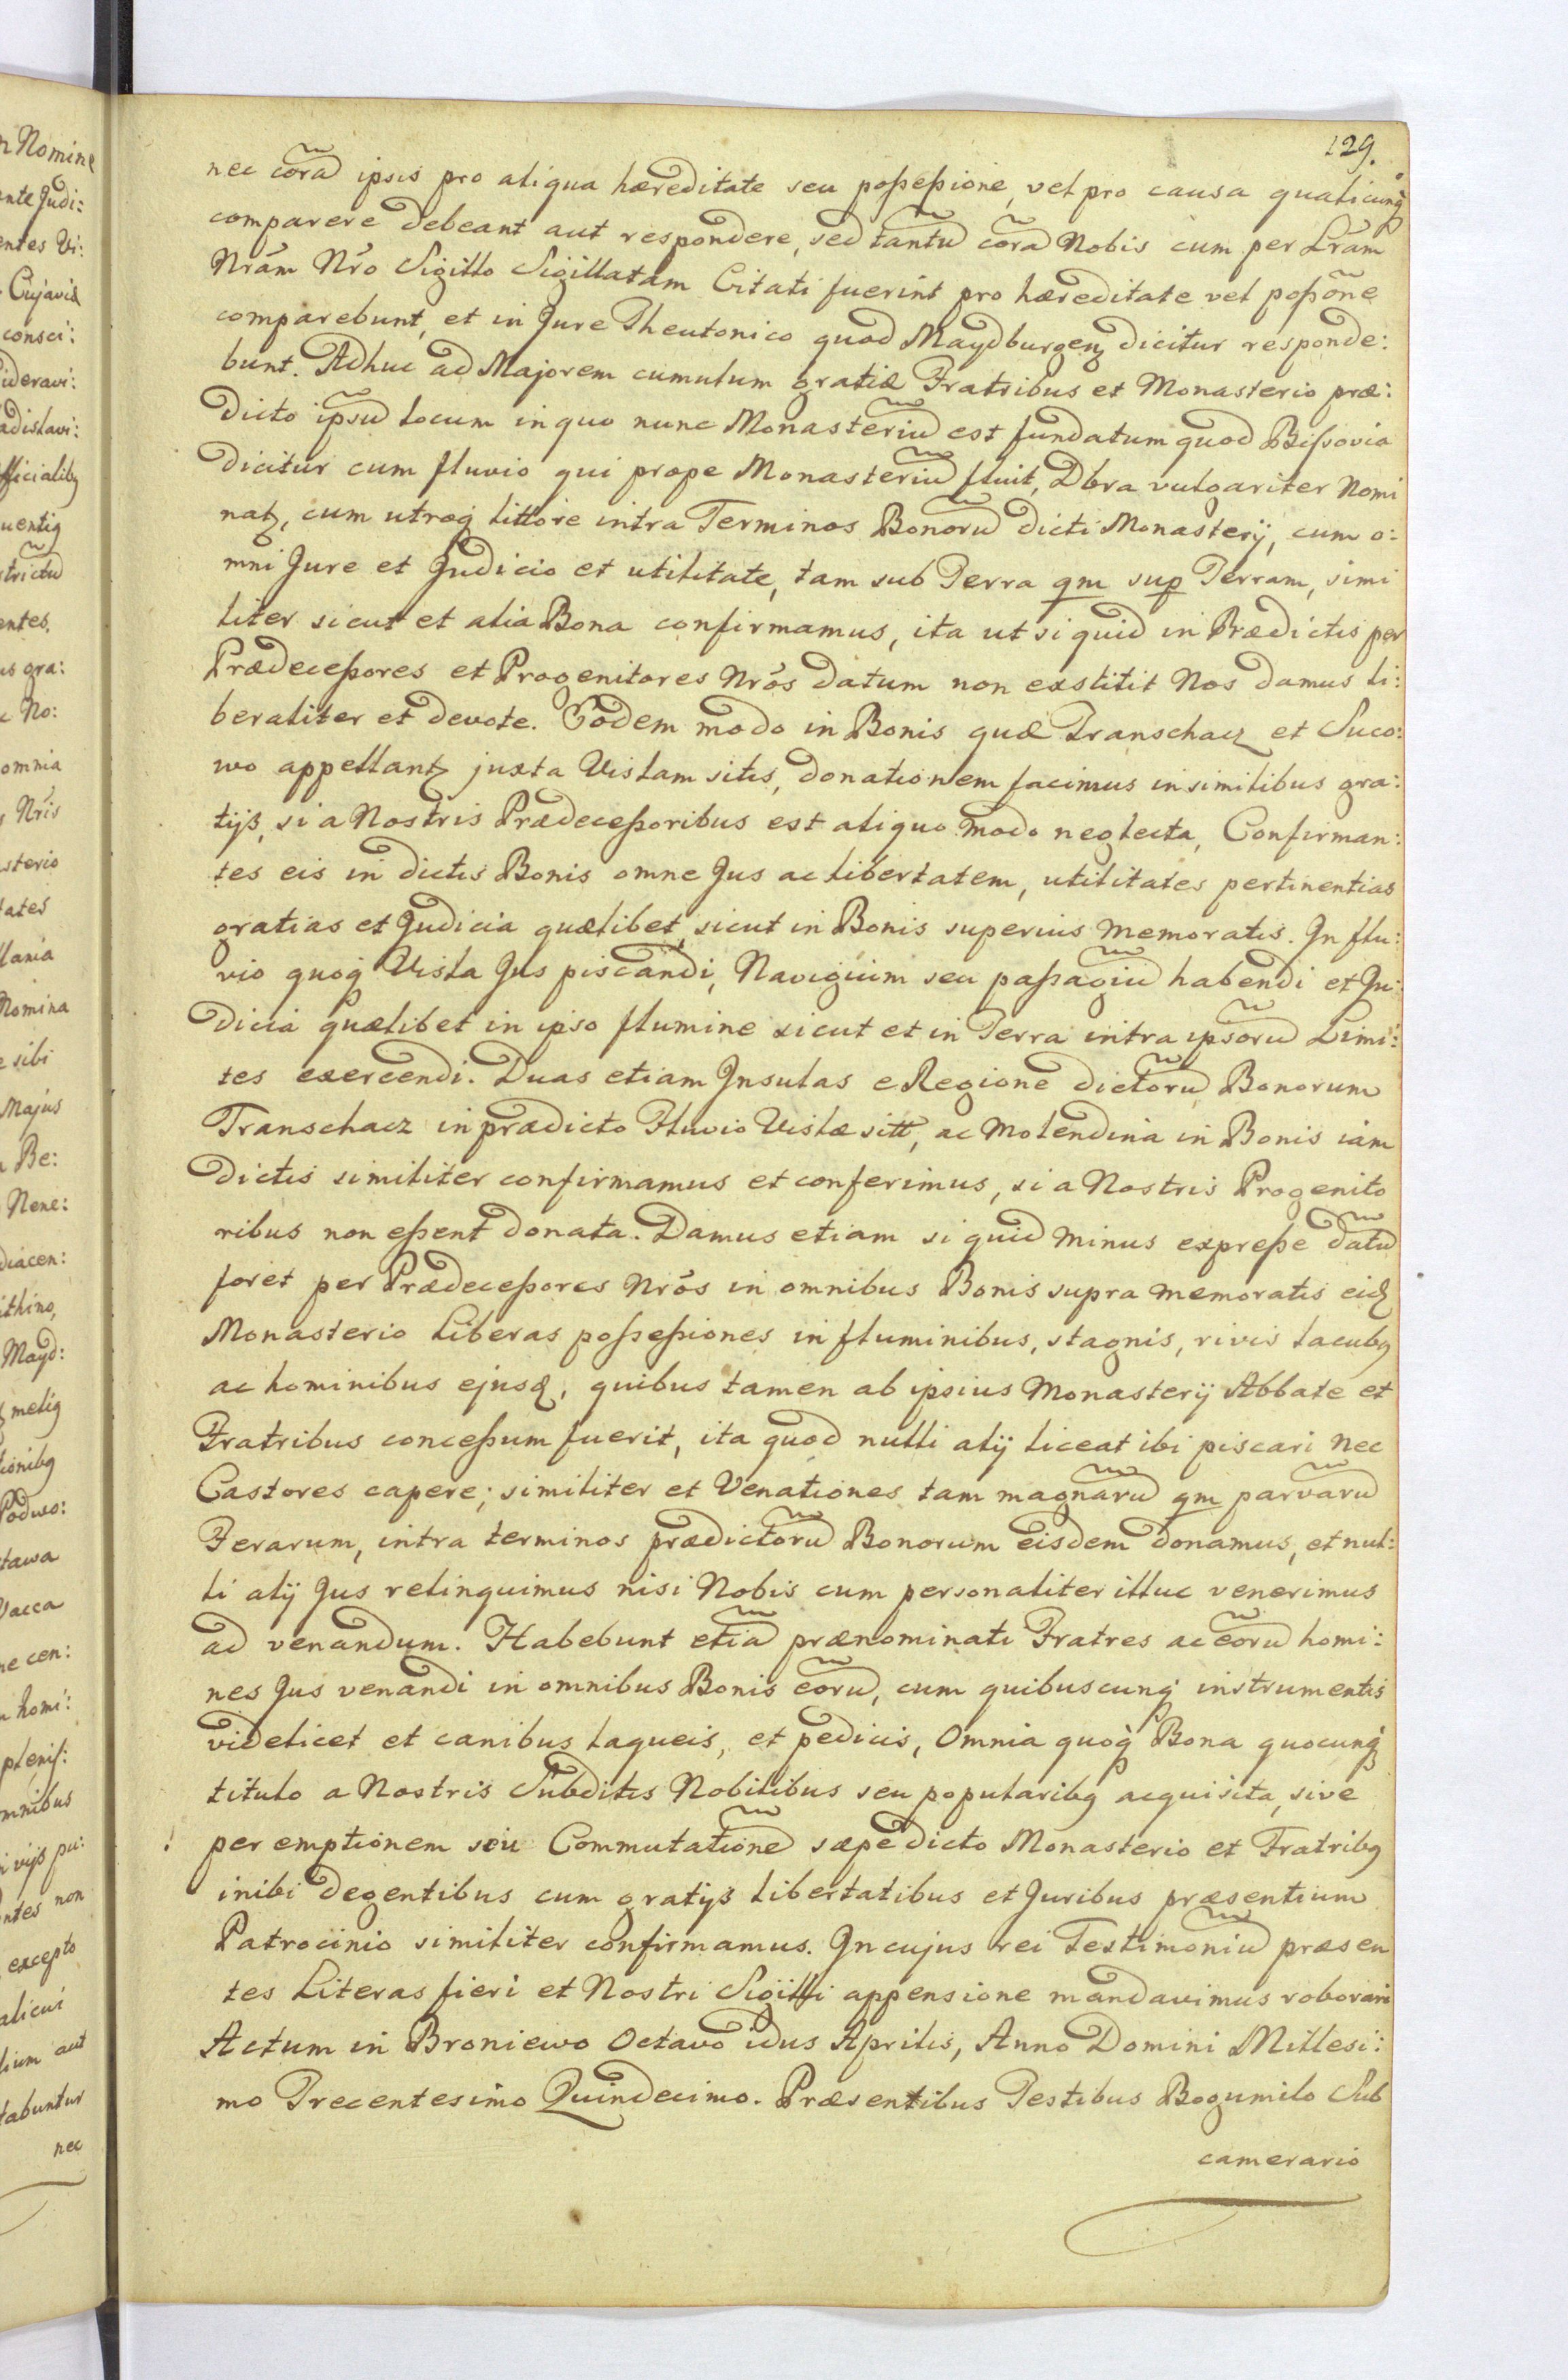 129.
nec corã ipsis pro aliqua hæreditate seu poßeßione, vel pro causa qualicunq̃
comparere debeant aut respondere, sed tantũ corã Nobis cum per Lrãm
Nrãm Nrõ Sigillo Sigillatam Citati fuerint pro hæreditate vel poßone
comparebunt, et in Jure Theutonico quod Maydburgenʒ dicitur responde:
bunt. Adhuc ad Majorem cumulum gratiæ Fratribus et Monasterio præ:
dicto ipsũ locum in quo nunc Monasteriũ est fundatum quod Bißovia
dicitur cum fluvio qui prope Monasteriũ fluit, Dbra vulgariter Nomi
natʒ, cum utroq̃ littore intra Terminos Bonorũ dicti Monasterÿ, cum o:
mni Jure et Judicio et utilitate, tam sub Terra qm sup Terram, simi
liter sicut et alia Bona confirmamus, ita ut si quid in Prædictis per
Prædeceßores et Progenitores Nrõs datum non exstitit Nos damus li:
beraliter et devote. Eodem modo in Bonis quæ Transchacz et Suco:
wo appellantʒ juxta Vislam sitis, donationem facimus in similibus gra:
tÿs, si a Nostris Prædeceßoribus est aliquo modo neglecta, Confirman:
tes eis in dictis Bonis omne Jus ac libertatem, utilitates pertinentias
gratias et Judicia quælibet, sicut in Bonis superius memoratis. In flu:
vio quoq̃ Visla Jus piscandi, Navigium seu paßagiũ habendi et Ju:
dicia quælibet in ipso flumine sicut et in Terra intra ipsorũ Limi:
tes exercendi. Duas etiam Insulas e Regione dictorũ Bonorum
Transchacz in prædicto Fluvio Vislæ sitt, ac Molendina in Bonis iam
dictis similiter confirmamus et conferimus, si a Nostris Progenito
ribus non eßent donata. Damus etiam si quid minus expreße datũ
foret per Prædeceßores Nrõs in omnibus Bonis supra memoratis eidʒ
Monasterio Liberas poßeßiones in fluminibus, stagnis, rivis lacubʒ
ac hominibus ejusdʒ, quibus tamen ab ipsius Monasterÿ Abbate et
Fratribus conceßum fuerit, ita quod nulli alÿ liceat ibi piscari nec
Castores capere; similiter et Venationes tam magnarũ qm parvarũ
Ferarum, intra terminos prædictorũ Bonorum eisdem donamus, et nul:
li alÿ Jus relinquimus nisi Nobis cum personaliter illuc venerimus
ad venandum. Habebunt etiã prænominati Fratres ac eorũ homi:
nes Jus venandi in omnibus Bonis eorũ, cum quibuscunq̃ instrumentis
videlicet et canibus laqueis, et pedicis, Omnia quoq̃ Bona quocunq̃
titulo a Nostris Subditis Nobilibus seu popularibʒ acquisita, sive
per emptionem seu Commutationẽ sæpe dicto Monasterio et Fratribʒ
inibi degentibus cum gratÿs libertatibus et Juribus præsentium
Patrocinio similiter confirmamus. In cujus rei Testimoniũ præsen
tes Literas fieri et Nostri Sigilli appensione mandavimus roborari
Actum in Broniewo Octavo idus Aprilis, Anno Domini Millesi:
mo Trecentesimo Quindecimo. Præsentibus Testibus Bogumilo Sub
camerario